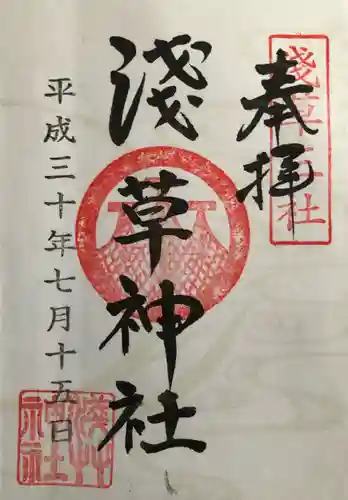 奉拝
淺草神社
淺草神社
平成三十年七月十五日
淺草神社